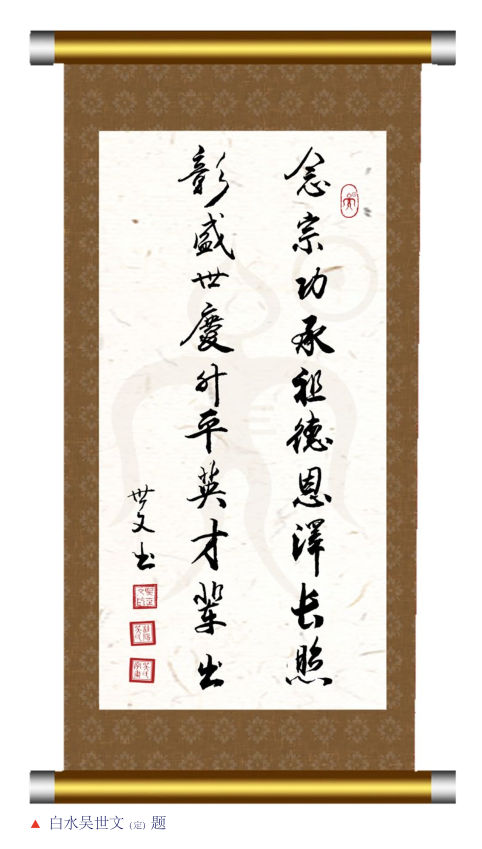 念宗功承祖德恩澤长照
彰盛世慶升平英才輩出
世文书
▲ 白水吴世文(定)题